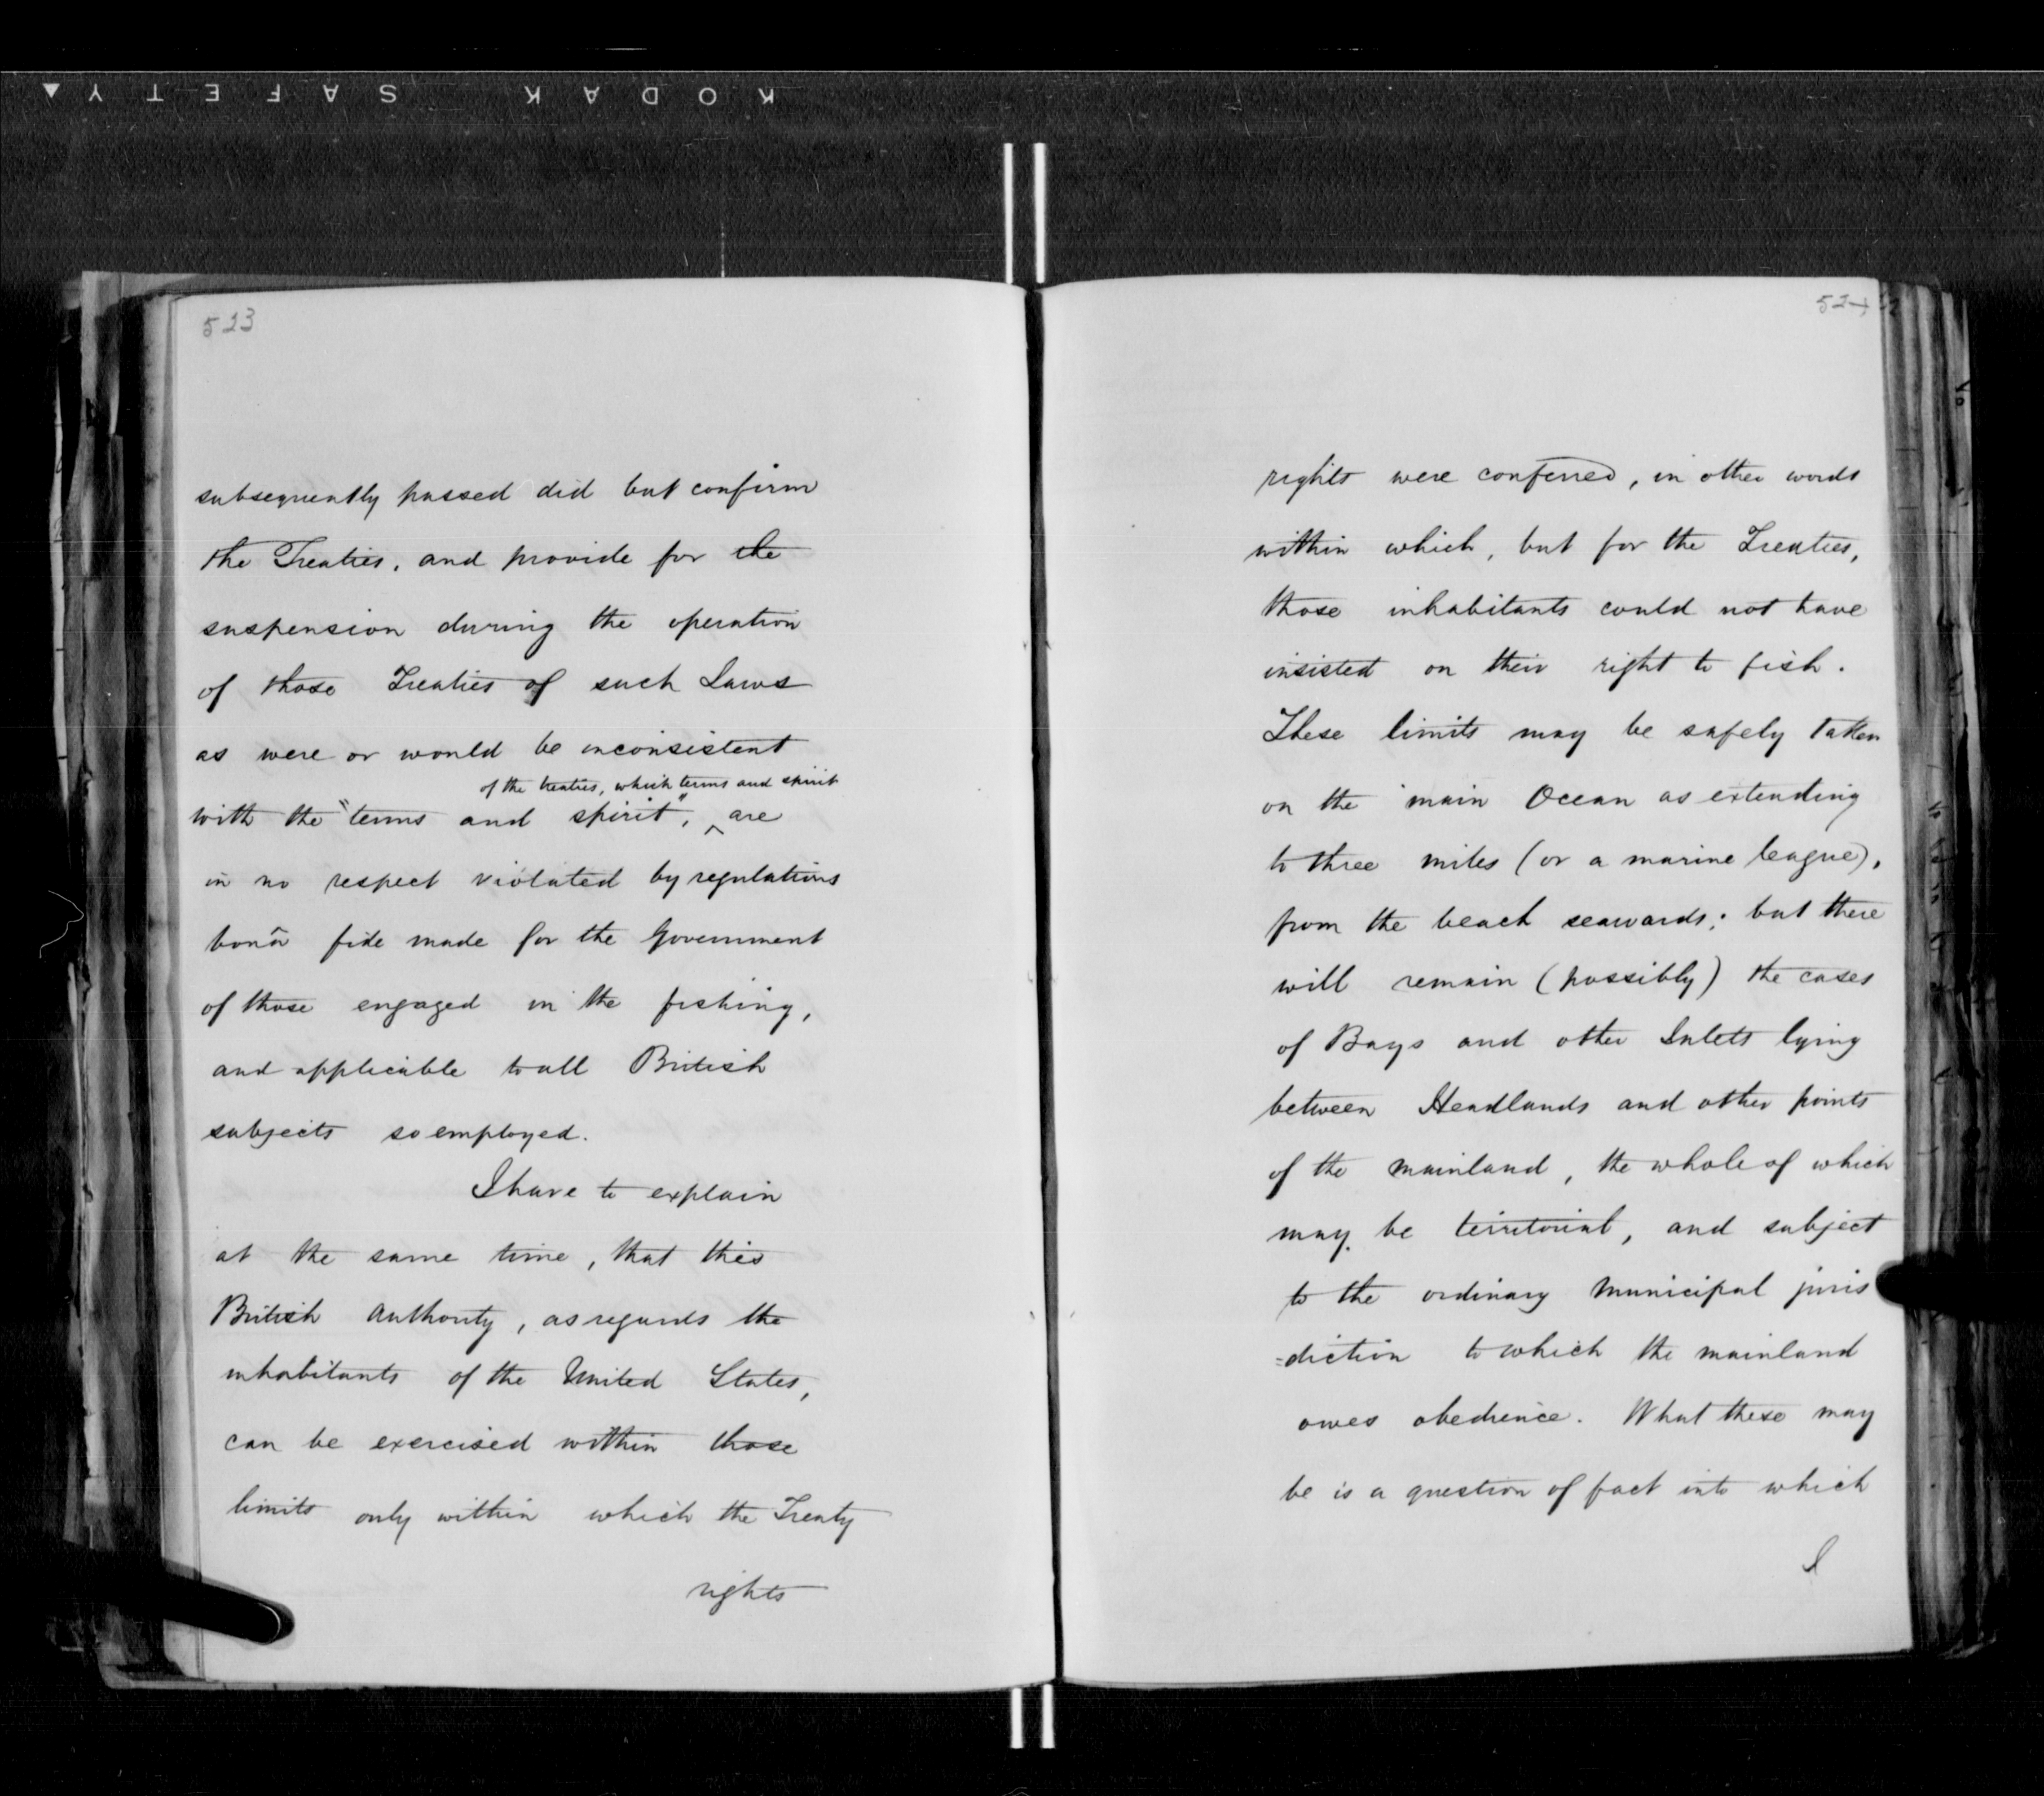 KODAK SAFETY
523
subsequently passed did but confirm
the Treaties, and provide for the
suspension during the operation
of those Treaties of such Laws
as were or would be inconsistent
of the treaties, which terms and spirit
with the "terms and spirit", ^ are
in no respect violated by regulations
bonâ fide made for the Government
of those engaged in the fishing,
and applicable to all British
subjects so employed.
I have to explain
at the same time, that this
British Authority, as regards the
inhabitants of the United States,
can be exercised within those
limits only within which the Treaty
rights
524
rights were conferred, in other words
within which, but for the Treaties,
those inhabitants could not have
insisted on their right to fish.
These limits may be safely taken
on the main Ocean as extending
to three miles (or a marine league),
from the beach seawards; but there
will remain (possibly) the cases
of Bays and other Inlets lying
between Headlands and other points
of the mainland, the whole of which
may be territorial, and subject
to the ordinary Municipal juris
=diction to which the mainland
owes obedience. What these may
be is a question of fact into which
I